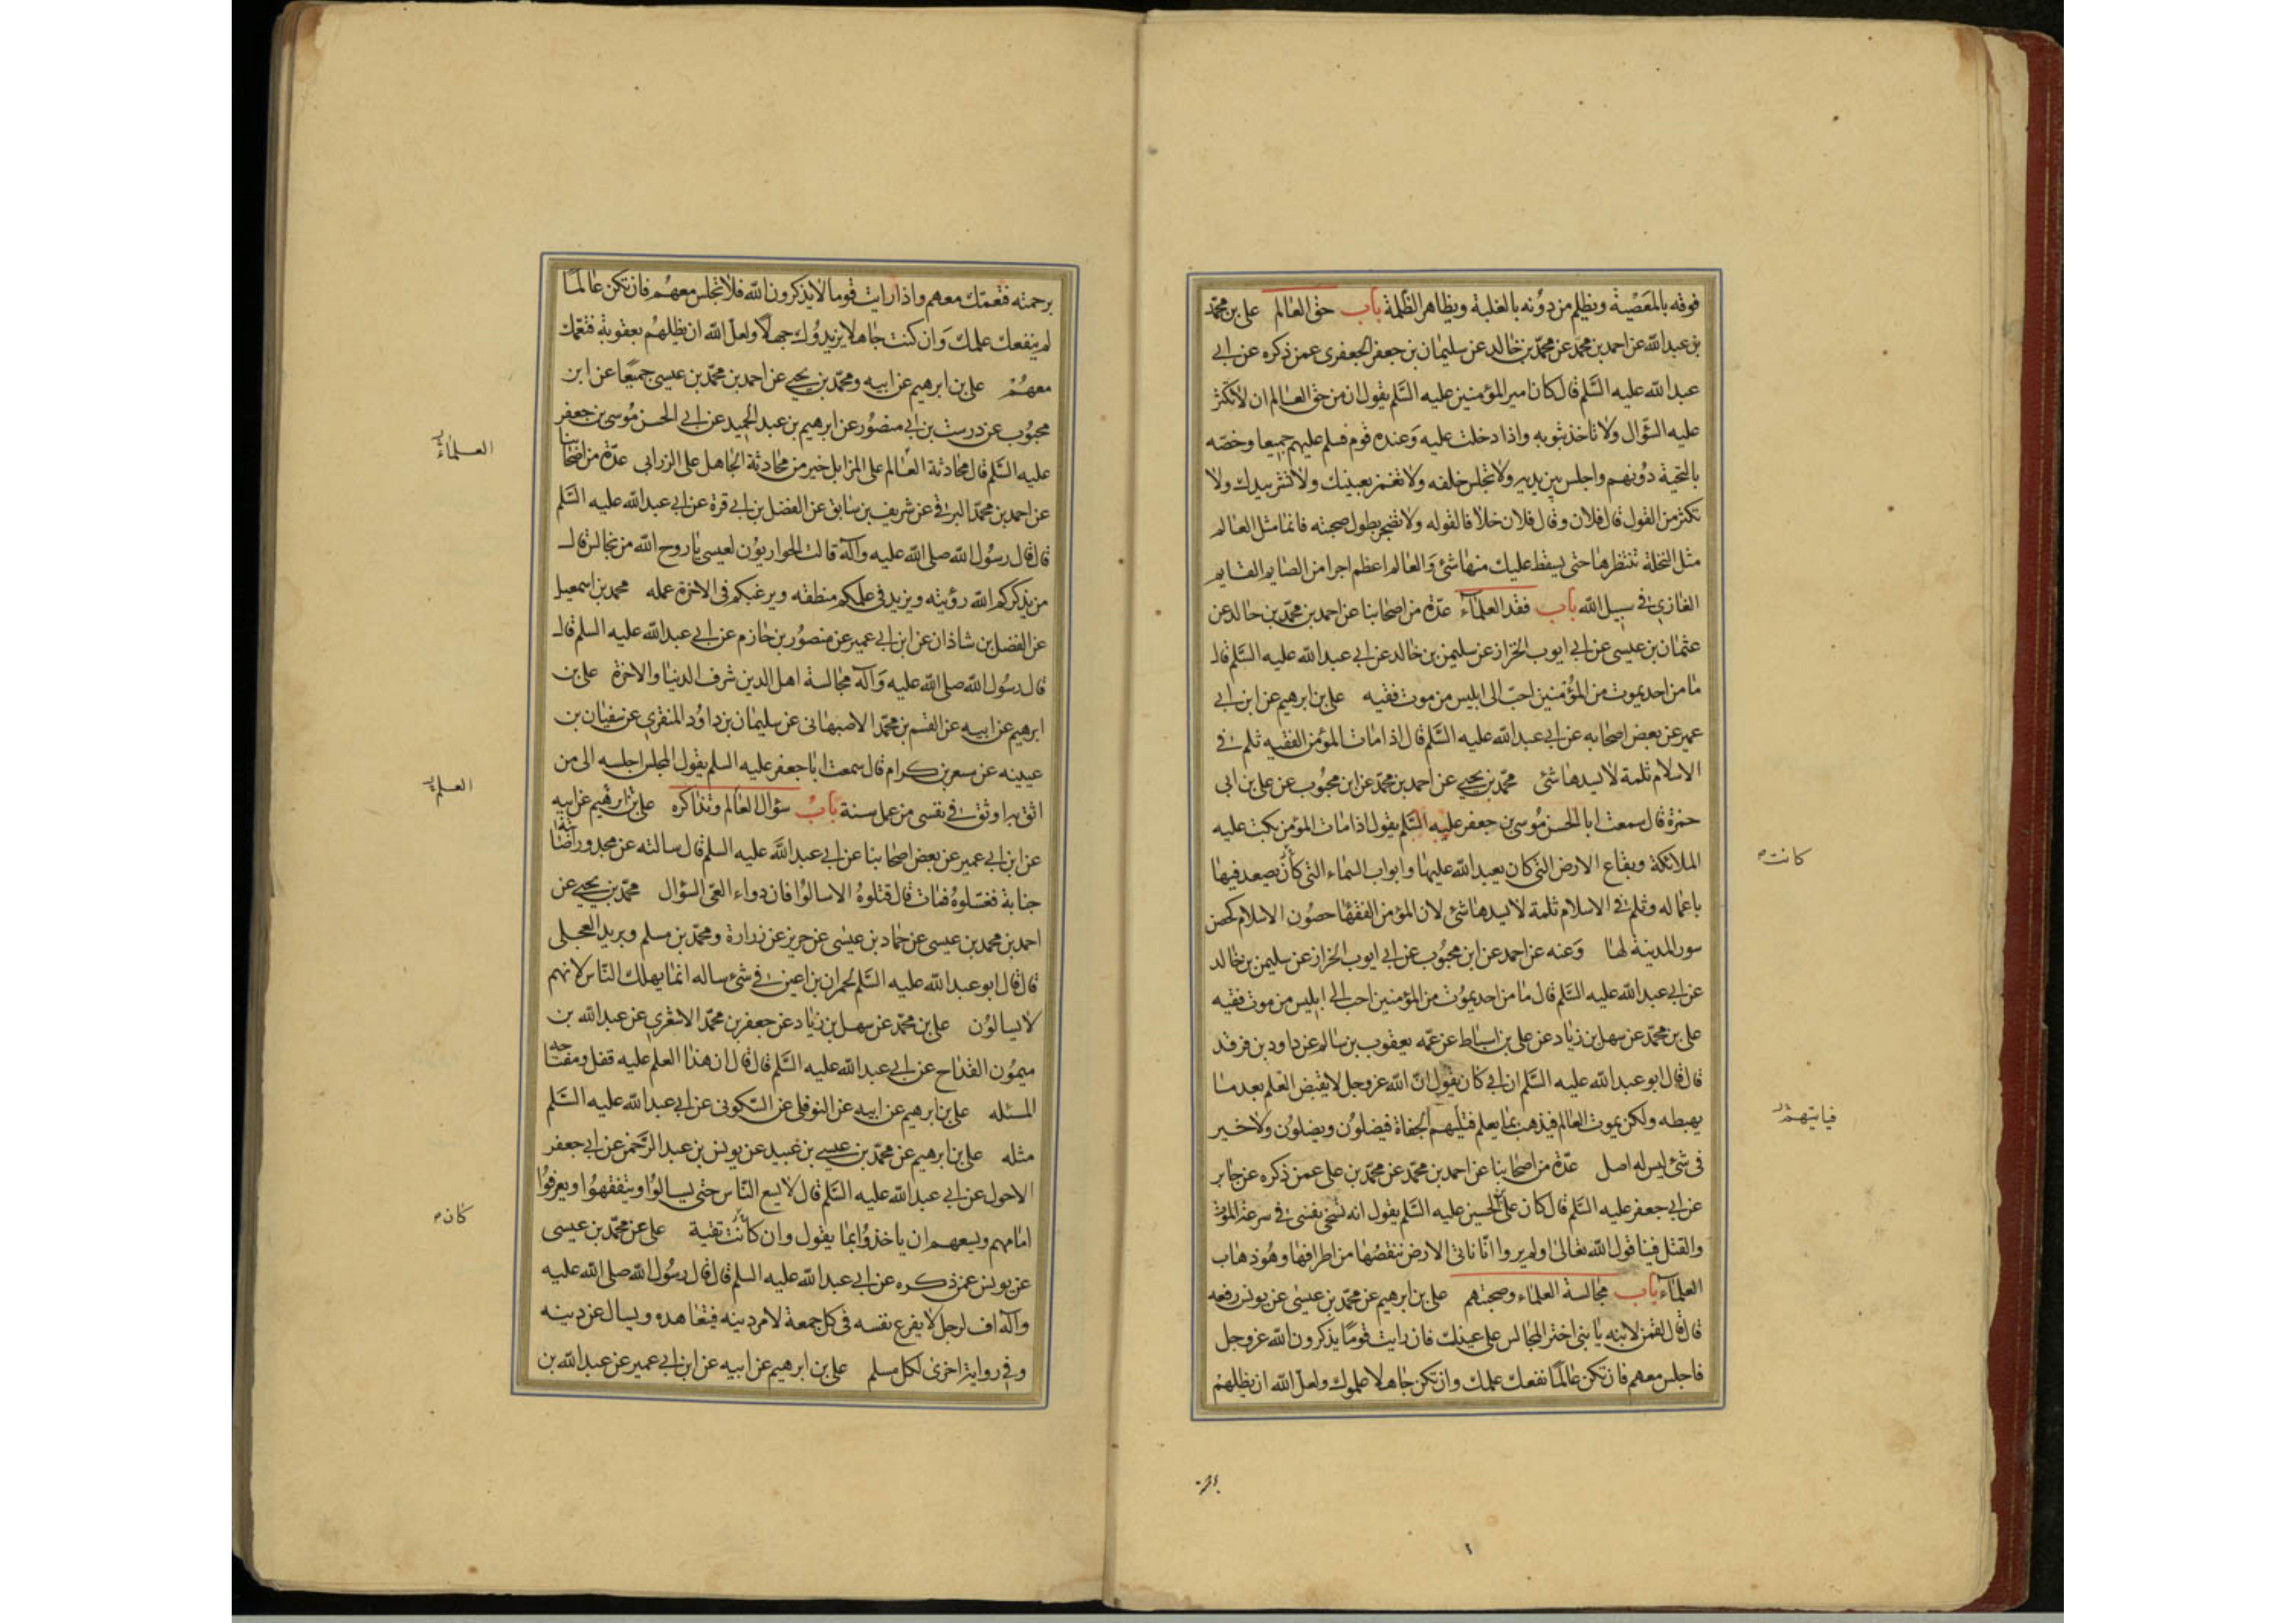 فوقه بالمعصية ويظلم من دونه بالغلبة ويظاهر الظلمة باب حق العالم علی بن محمد
بن عبد الله عن احمد بن محمد عن محمد بن خالد عن سليمان بن جعفر الجعفری عمن ذكره عن ابی
عبد الله عليه السلم قال كان امير المؤمنين عليه السلم يقول ان من حق العالم ان لا تكثر
عليه السؤال ولا تاخذ بثوبه واذا دخلت عليه وعنده قوم فسلم عليهم جميعا وخصه
بالتحية دونهم واجلس بين يديه ولا تجلس خلفه ولا تغمز بعينك ولا تشر بيدك ولا
تكثر من القول قال فلان وقال فلان خلافا لقوله ولا تضجر بطول صحبته فانما مثل العالم
مثل النخلة تنتظرها حتى يسقط عليك منها شئ والعالم اعظم اجرا من الصايم القايم
الغازی فی سبيل الله باب فقد العلمآء عدة من اصحابنا عن احمد بن محمد بن خالد عن
عثمان بن عيسى عن ابی ايوب الخزاز عن سليمن بن خالد عن ابی عبد الله عليه السلم قال
ما من احد يموت من المؤمنين احب الى ابليس من موت فقيه علی بن ابرهيم عن ابن ابی
عمير عن بعض اصحابه عن ابی عبد الله عليه السلم قال اذا مات المؤمن الفقيه ثلم فی
الاسلام ثلمة لا يسدها شئ محمد بن يحيى عن احمد بن محمد عن ابن محبوب عن علی بن ابی
حمزة قال سمعت ابا الحسن موسى بن جعفر عليه السلم يقول اذا مات المؤمن بكت عليه
الملائكة وبقاع الارض التی كان يعبد الله عليها وابواب السماء التی كان يصعد فيها
كانت
باعماله وثلم فی الاسلام ثلمة لا يسدها شئ لان المؤمن الفقهاء حصون الاسلام كحصن
سور المدينة لها وعنه عن احمد عن ابن محبوب عن ابی ايوب الخزاز عن سليمن بن خالد
عن ابی عبد الله عليه السلم قال ما من احد يموت من المؤمنين احب الى ابليس من موت فقيه
علی بن محمد عن سهل بن زياد عن علی بن اسباط عن عمه يعقوب بن سالم عن داود بن فرقد
قال قال ابو عبد الله عليه السلم ان ابی كان يقول ان الله عز وجل لا يقبض العلم بعد ما
يهبطه ولكن يموت العالم فيذهب بما يعلم فتليهم الجفاة فيضلون ويضلون ولا خير
فی شئ ليس له اصل عدة من اصحابنا عن احمد بن محمد عن محمد بن علی عمن ذكره عن جابر
عن ابی جعفر عليه السلم قال كان علی الحسين عليه السلم يقول انه تسخى نفسی فی سرعة الموت
والقتل فينا قول الله تعالى اولم يروا انا ناتی الارض ننقصها من اطرافها وهو ذهاب
العلمآء باب مجالسة العلماء وصحبتهم علی بن ابرهيم عن محمد بن عيسى عن يونس رفعه
قال قال لقمن لابنه يا بنی اختر المجالس على عينك فان رايت قوما يذكرون الله عز وجل
فاجلس معهم فان تكن عالما نفعك علمك وان تكن جاهلا علموك ولعل الله ان يظلهم
برحمته فتعمك معهم واذا رايت قوما لا يذكرون الله فلا تجلس معهم فان تكن عالما
لم ينفعك علمك وان كنت جاهلا يزيدوك جهلا ولعل الله ان يظلهم بعقوبة فتعمك
معهم علی بن ابرهيم عن ابيه ومحمد بن يحيى عن احمد بن محمد بن عيسى جميعا عن ابن
محبوب عن درست بن ابی منصور عن ابرهيم بن عبد الحميد عن ابی الحسن موسى بن جعفر
عليه السلم قال محادثة العالم على المزابل خير من محادثة الجاهل على الزرابی عدة من اصحابنا
عن احمد بن محمد البرقی عن شريف بن سابق عن الفضل بن ابی قرة عن ابی عبد الله عليه السلم
قال قال رسول الله صلى الله عليه وآله قالت الحواريون لعيسى يا روح الله من نجالس قال
من يذكركم الله رؤيته ويزيد فی علمكم منطقه ويرغبكم فی الاخرة عمله محمد بن اسمعيل
عن الفضل بن شاذان عن ابن ابی عمير عن منصور بن حازم عن ابی عبد الله عليه السلم قال
قال رسول الله صلى الله عليه وآله مجالسة اهل الدين شرف الدنيا والاخرة علی بن
ابرهيم عن ابيه عن القسم بن محمد الاصبهانی عن سليمان بن داود المنقری عن سفيان بن
عيينه عن مسعر بن كرام قال سمعت ابا جعفر عليه السلم يقول المجلس اجلسه الى من
اثق به اوثق فی نفسی من عمل سنة باب سؤال العالم وتذاكره علی بن ابرهيم عن ابيه
عن ابن ابی عمير عن بعض اصحابنا عن ابی عبد الله عليه السلم قال سالته عن مجدور اصابته
جنابة فغسلوه فمات قال قتلوه الا سالوا فان دواء العی السؤال محمد بن يحيى عن
احمد بن محمد بن عيسى عن حماد بن عيسى عن حريز عن زرارة ومحمد بن مسلم وبريد العجلی
قال قال ابو عبد الله عليه السلم لحمران بن اعين فی شئ ساله انما يهلك الناس لانهم
لا يسالون علی بن محمد عن سهل بن زياد عن جعفر بن محمد الاشعری عن عبد الله بن
ميمون القداح عن ابی عبد الله عليه السلم قال قال ان هذا العلم عليه قفل ومفتاحه
المسئله علی بن ابرهيم عن ابيه عن النوفلی عن السكونی عن ابی عبد الله عليه السلم
مثله علی بن ابرهيم عن محمد بن عيسى بن عبيد عن يونس بن عبد الرحمن عن ابی جعفر
الاحول عن ابی عبد الله عليه السلم قال لا يسع الناس حتى يسالوا ويتفقهوا ويعرفوا
امامهم ويسعهم ان ياخذوا بما يقول وان كانت تقية علی عن محمد بن عيسى
كان
عن يونس عمن ذكره عن ابی عبد الله عليه السلم قال قال رسول الله صلى الله عليه
وآله اف لرجل لا يفرغ نفسه فی كل جمعة لامر دينه فيتعاهده ويسال عن دينه
وفی رواية اخرى لكل مسلم علی بن ابرهيم عن ابيه عن ابن ابی عمير عن عبد الله بن